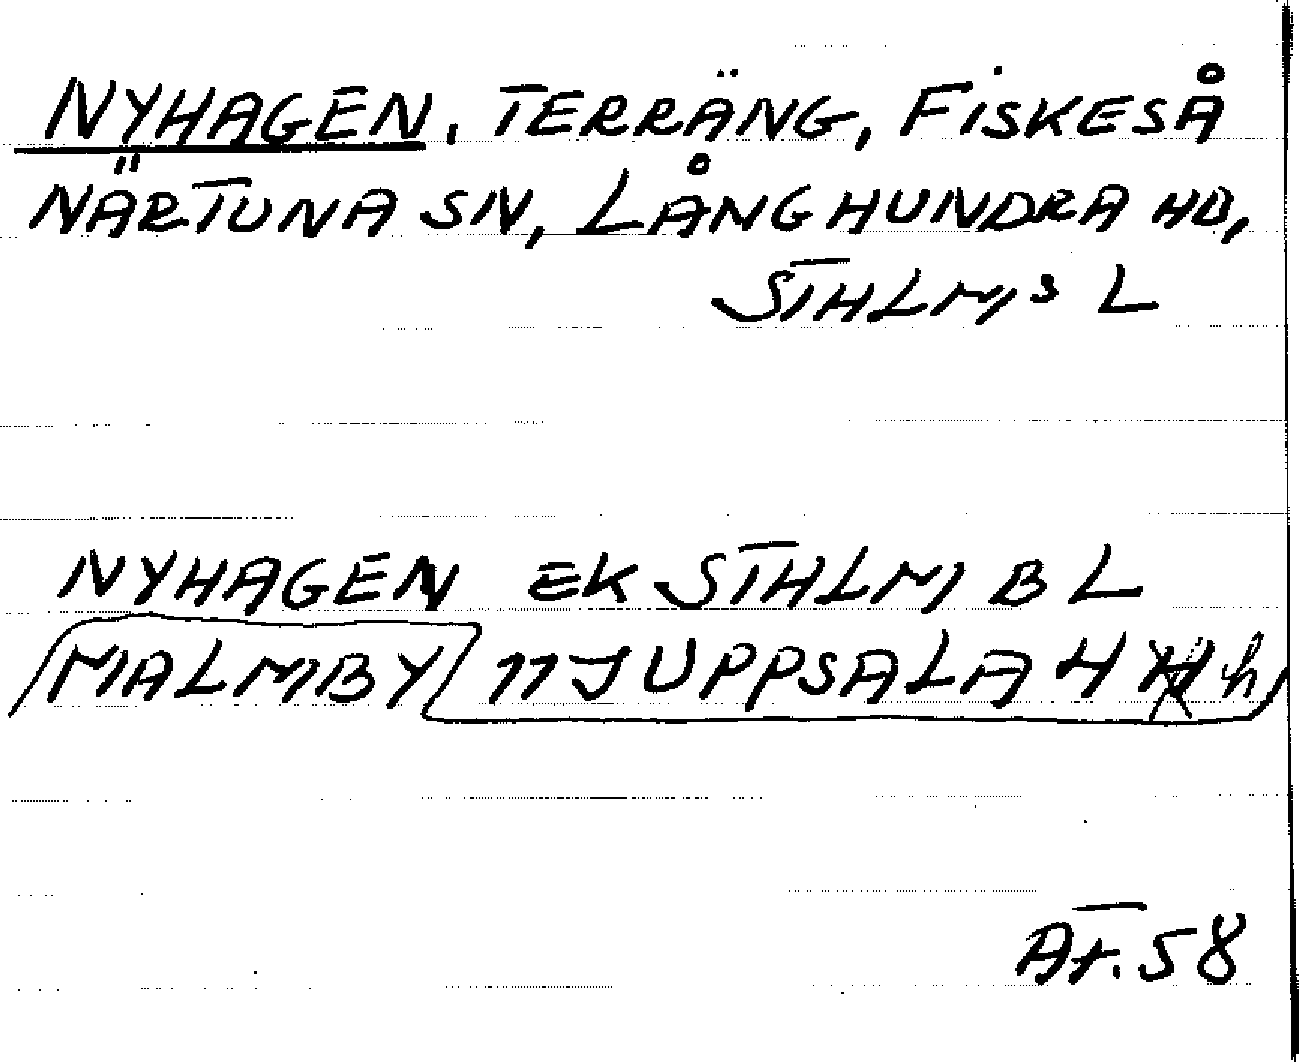 NYHAGEN, TERRÄNG, FISKESÅ
NÄRTUNA SN, LÅNGHUNDRA HD,
STHLMS L
NYHAGEN EK STHLM B L
MALMBY 11J UPPSALA H h
AT.58